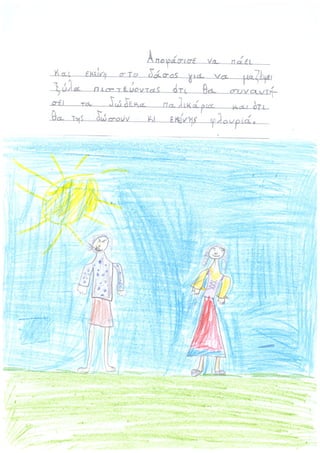 Αποφάσισε να πάει
και εκείνη στο δάσος για να μαζέψει
ξύλα πιστεύοντας ότι θα συναντή-
σει τα δώδεκα παλικάρια και ότι
θα της δώσουν κι εκείνης φλουριά.